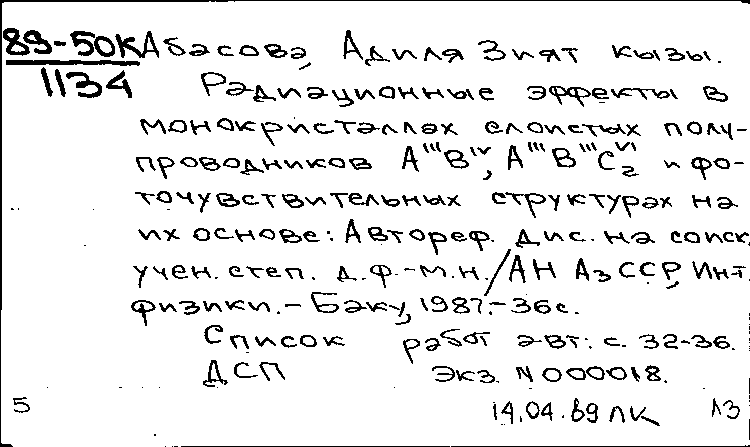 89-50К Абасова, Адиля Зият кызы.
1134 Радиационные эффекты в
монокристаллах слоистых полу-
проводников A'''B'v, A'''B'''C₂v' и фо-
точувствительных структурах на
их основе: Автореф. дис. на соиск.
учен. степ. д.ф.-м.н./АН АзССР, Ин-т
физики.-Баку, 1987.-36с.
Список работ авт.: с. 32-36.
ДСП Экз. N 000018.
5 14.04.89 ЛК ЛЗ